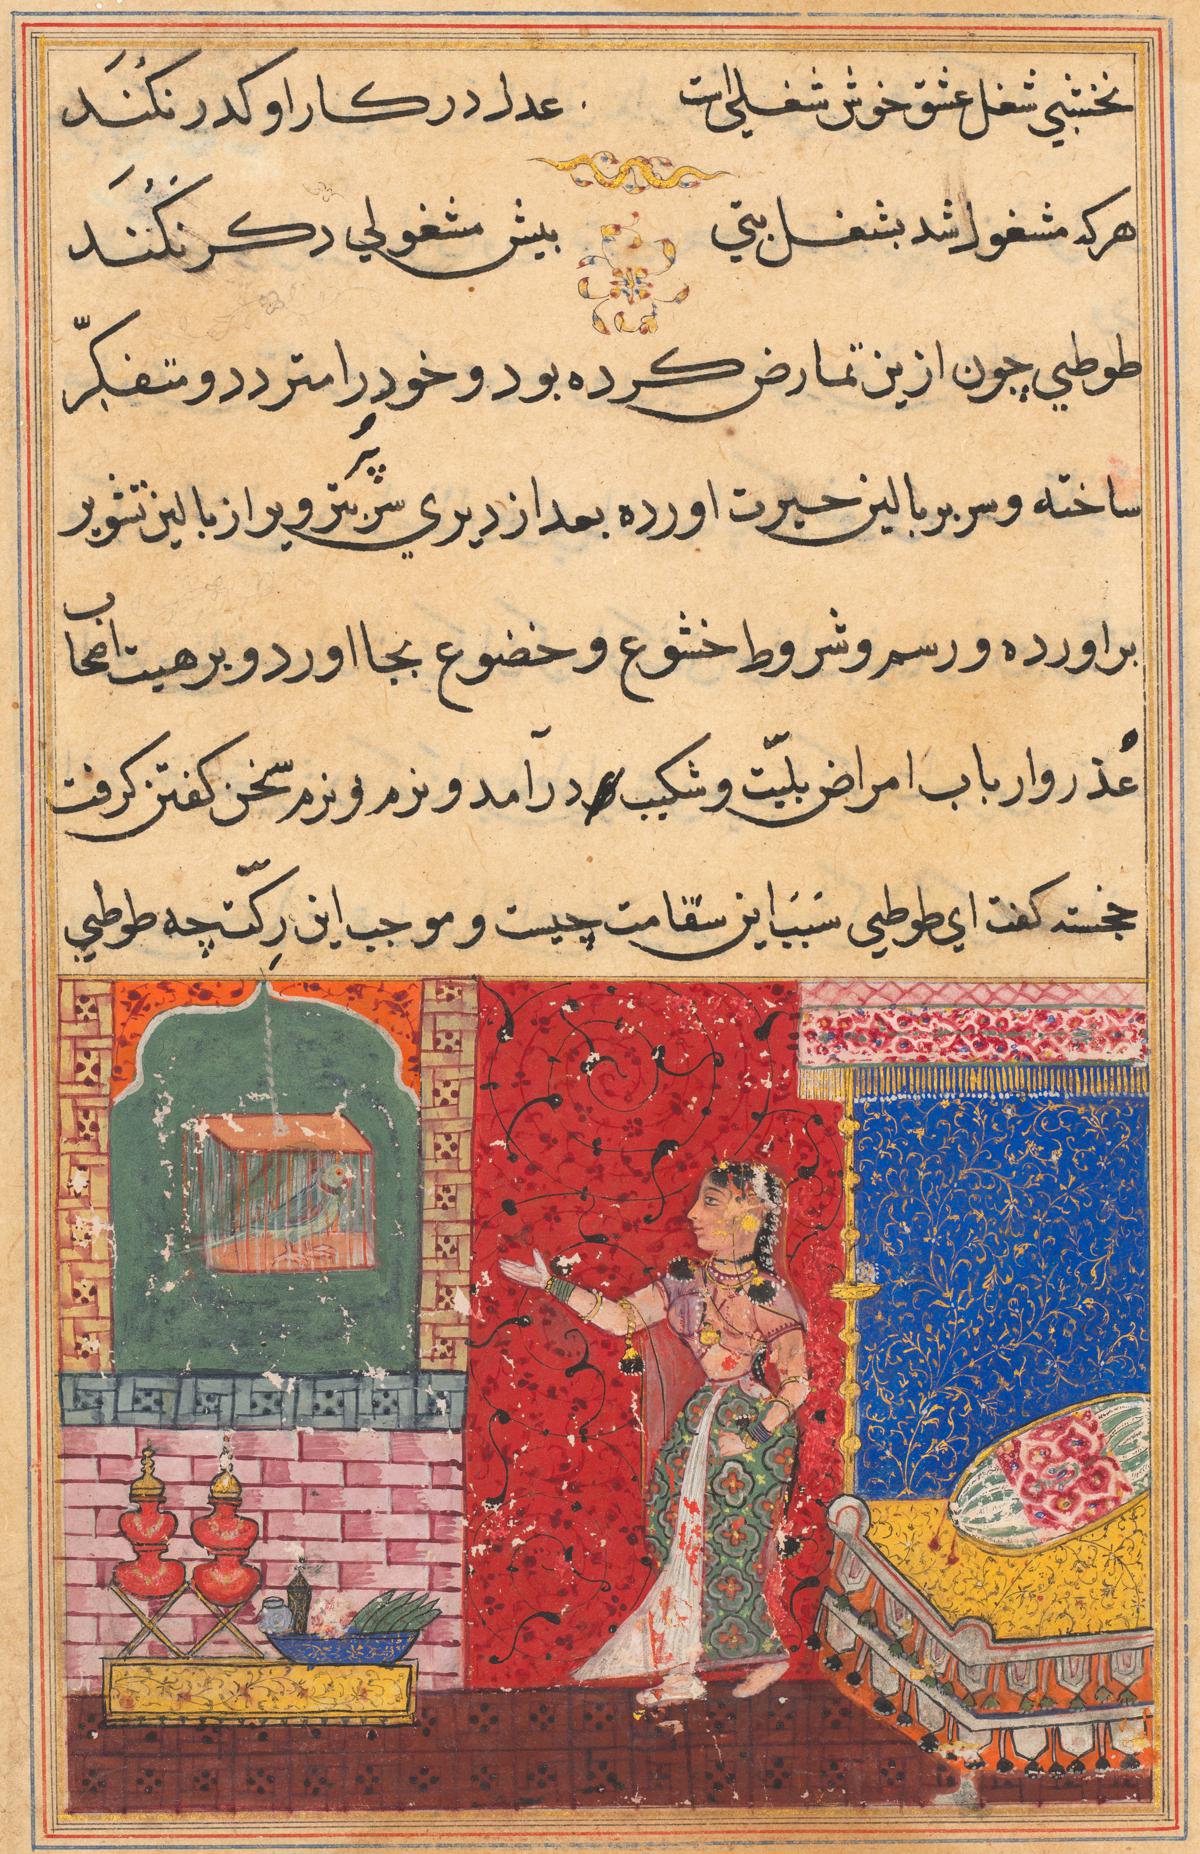 نخشبي شغل عشق خوش شغلي است عدل در كار او كدر نكند
هركه مشغول شد بشغل بتي بيش مشغولي دكر نكند
طوطي چون ازين تمارض كرده بود و خود را متردد و متفكّر
ساخته و سر بر بالين حيرت اورده بعد از ديري سر پر از بالين تشوير
براورده و رسم و شروط خشوع و خضوع بجا اورد و بر هيت اصحاب
عُذر وارباب امراض بليّت و شكيب درآمد و نرم و نرم سخن كفتن كرفت
خجسته كفت اي طوطي سَبَب اين سقامت چيست و موجب اين رِكّت چه طوطي